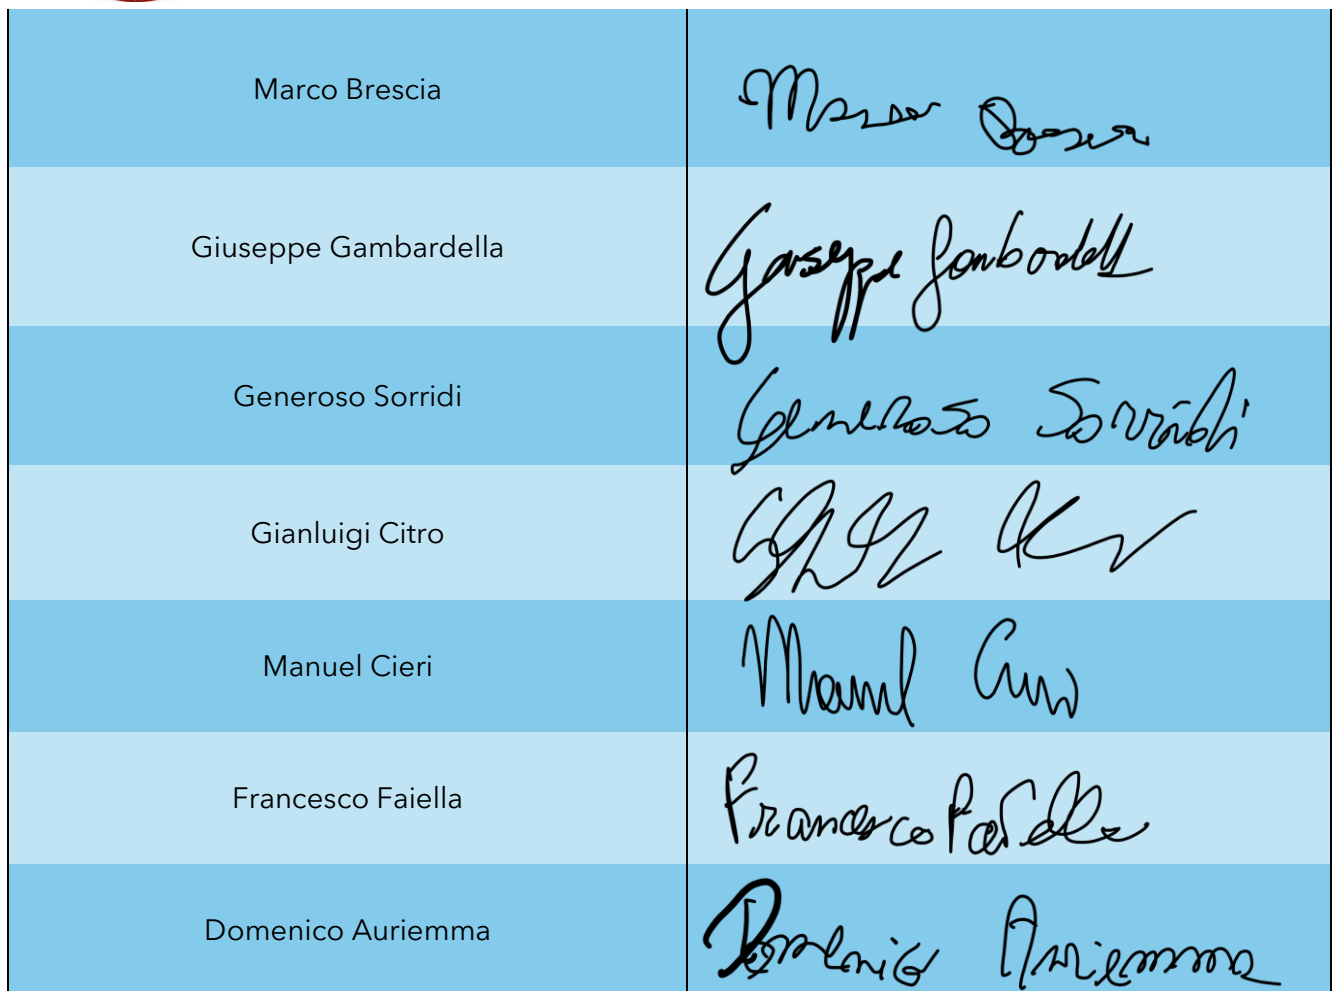 Marco Brescia Marco Brescia
Giuseppe Gambardella Giuseppe Gambardella
Generoso Sorridi Generoso Sorridi
Gianluigi Citro
Manuel Cieri Manuel Cieri
Francesco Faiella Francesco Faiella
Domenico Auriemma Domenico Auriemma